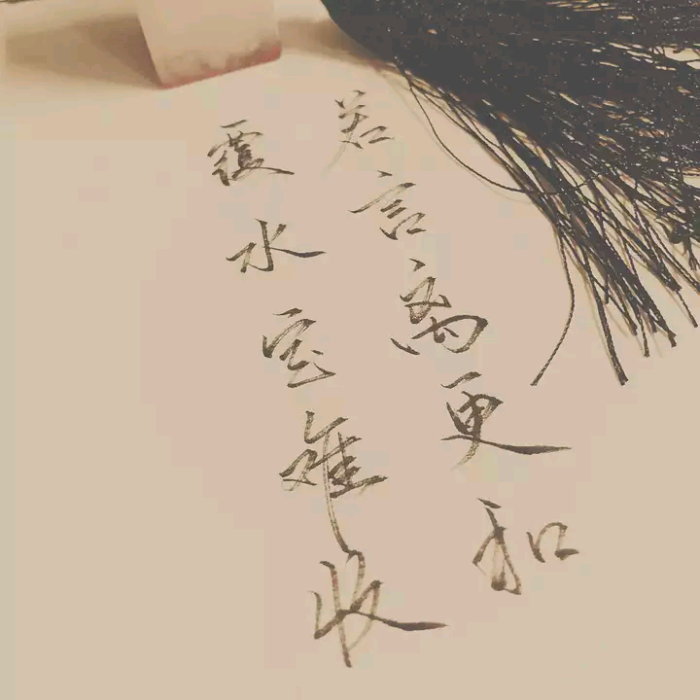 若言离更和
覆水定难收